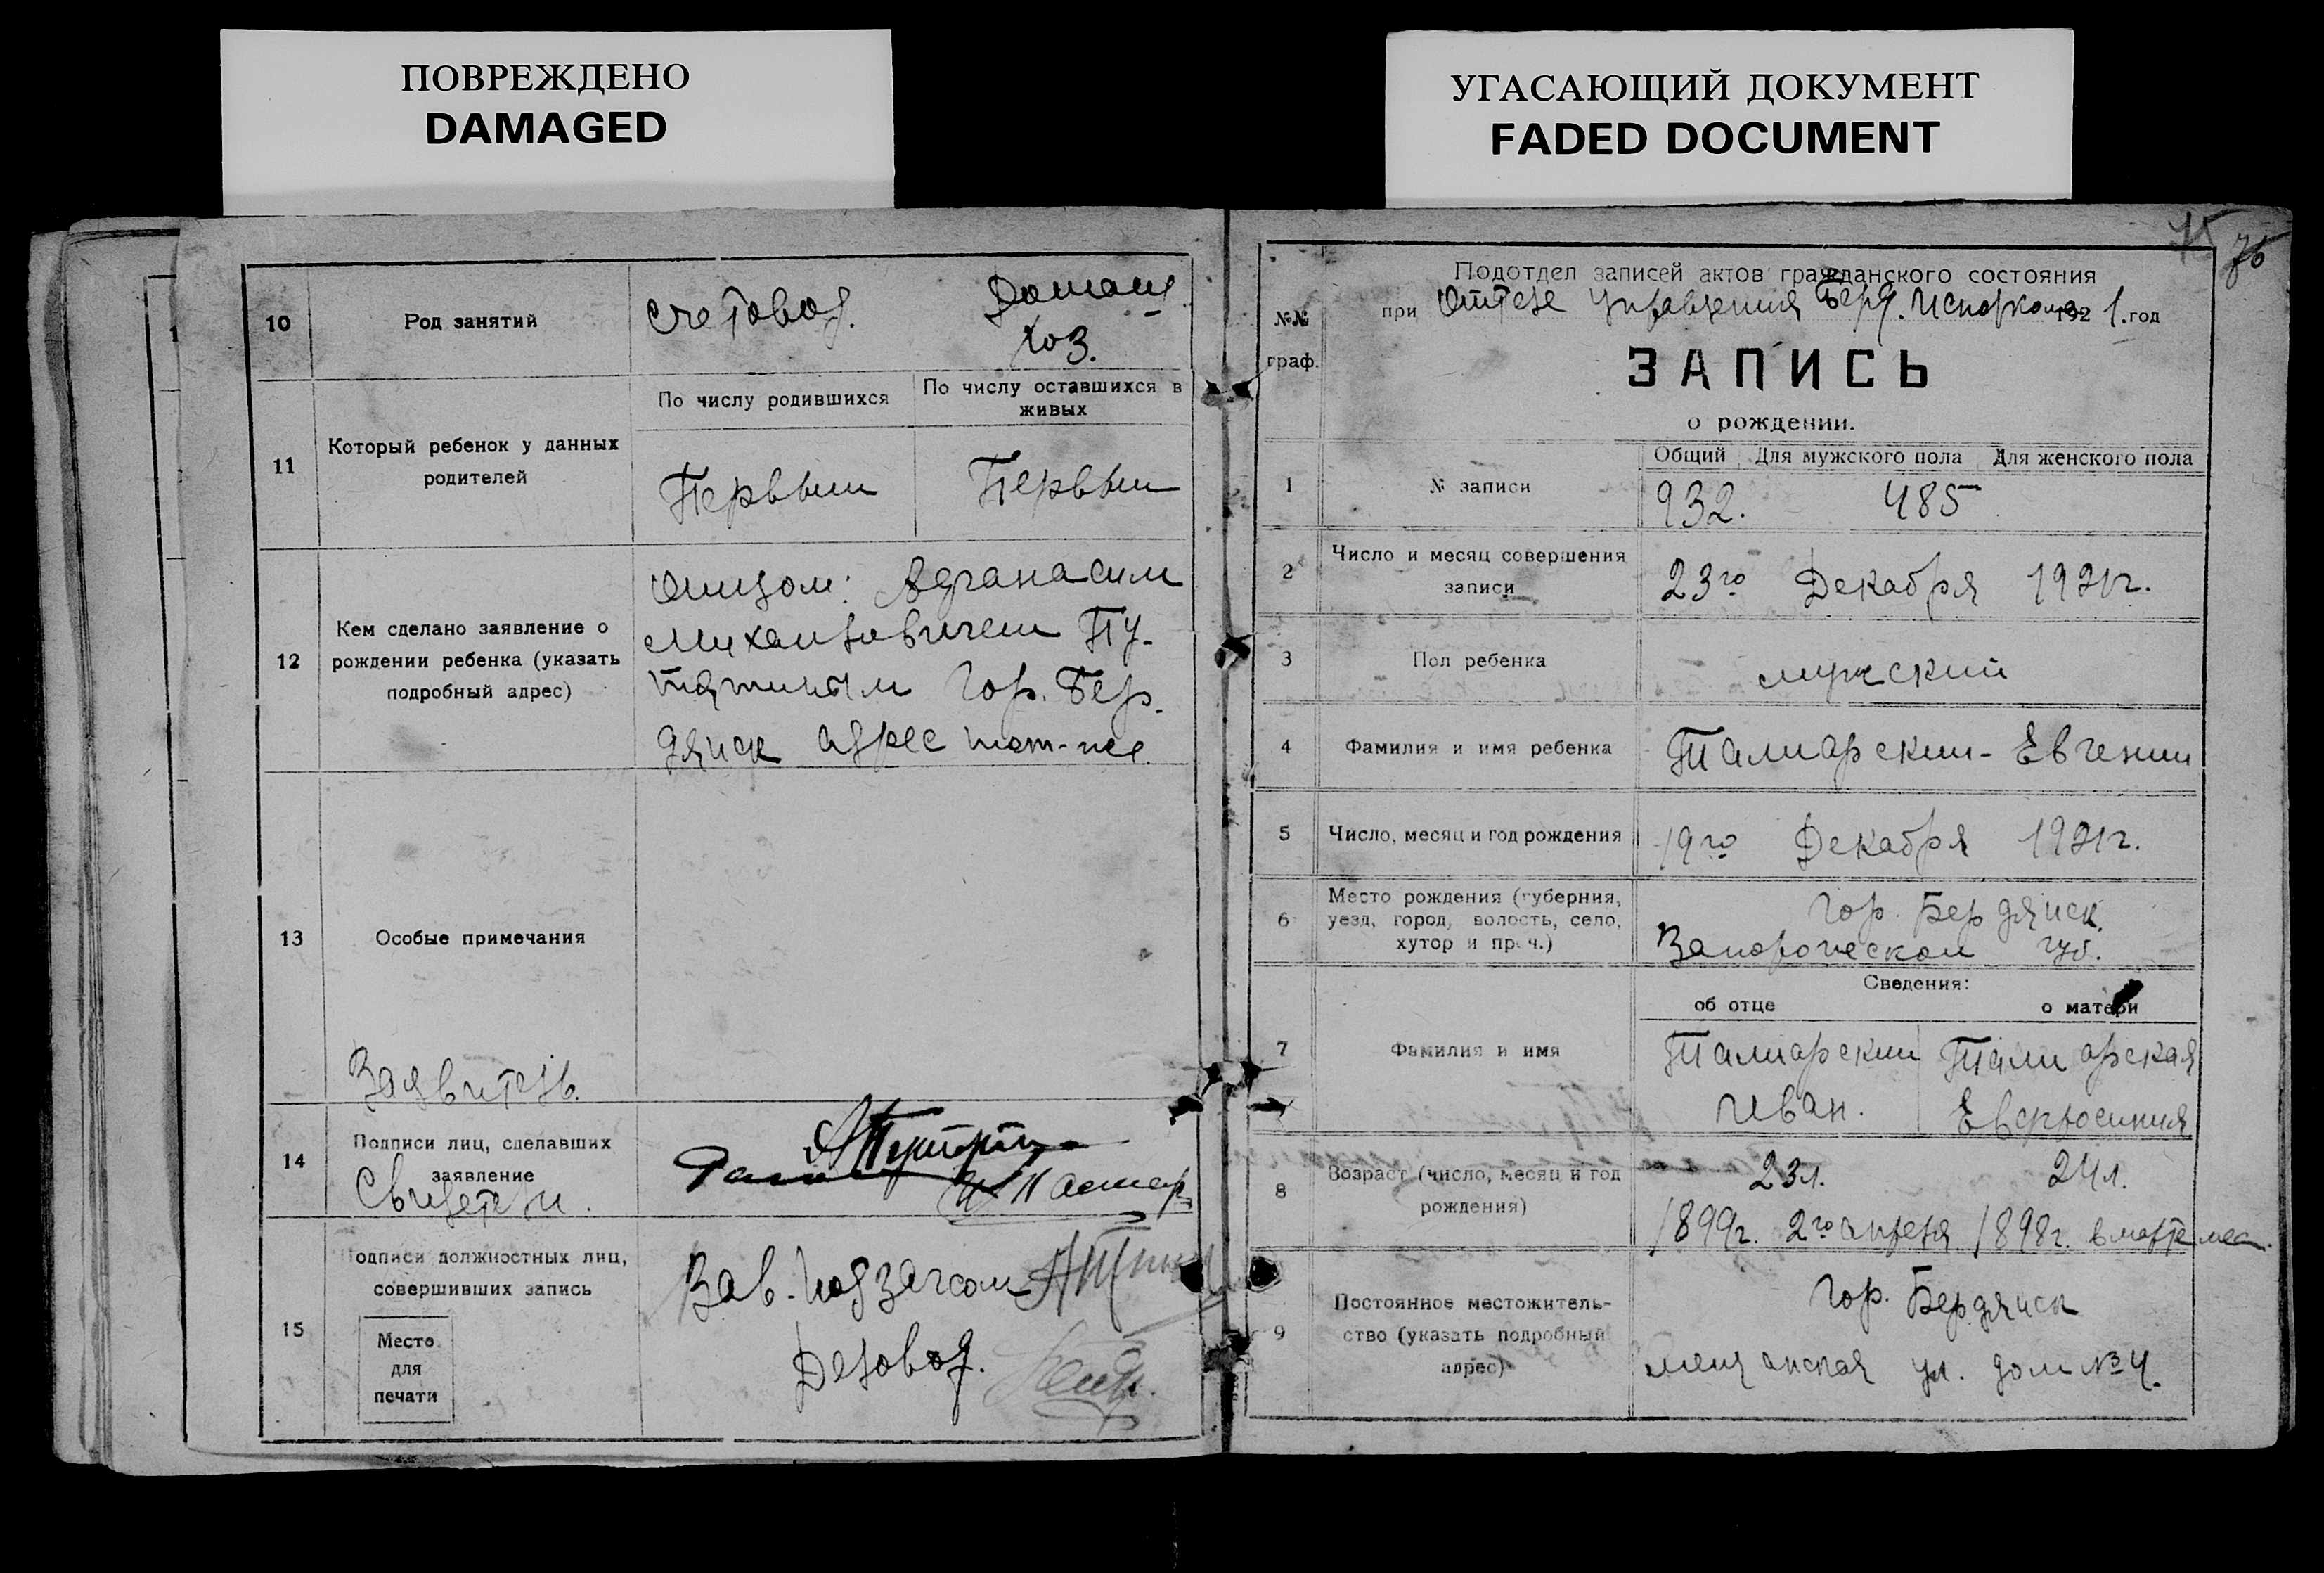 ПОВРЕЖДЕНО
DAMAGED
УГАСАЮЩИЙ ДОКУМЕНТ
FADED DOCUMENT
10
Род занятий
счетовод.
Домаш.
хоз.
11
Который ребенок у данных
родителей
По числу родившихся
По числу оставшихся в
живых
Первый
Первый
12
Кем сделано заявление о
рождении ребенка (указать
подробный адрес)
Отцом: Афанасием
Михайловичем Пу-
тятиным Гор. Бер-
дянск адрес тот-же.
13
Особые примечания
Заявитель.
14
Подписи лиц, сделавших
заявление
Свидетели.
15
одписи должностных лиц,
совершивших запись
Место
для
печати
Зав. подзагсом
Деловод.
76
№№
граф.
Подотдел записей актов гражданского состояния
при Отделе Управления Берд. Исполкома 1921. год
ЗАПИСЬ
о рождении.
1
№ записи
Общий Для мужского пола Для женского пола
932. 485
2
Число и месяц совершения
записи
23го Декабря 1921г.
3
Пол ребенка
мужский
4
Фамилия и имя ребенка
Талиарский - Евгений
5
Число, месяц и год рождения
19го Декабря 1921г.
6
Место рождения (губерния,
уезд, город, волость, село,
хутор и проч.)
Гор. Бердянск.
Запорожской губ.
Сведения:
об отце
о матери
7
Фамилия и имя
Талиарский
Иван.
Талиарская
Евфросиния
8
Возраст (число, месяц и год
рождения)
23л.
24л.
1899г. 2го апреля
1898г. в марте мес.
9
Постоянное местожитель-
ство (указать подробный
адрес)
Гор. Бердянск
ул. дом №4.